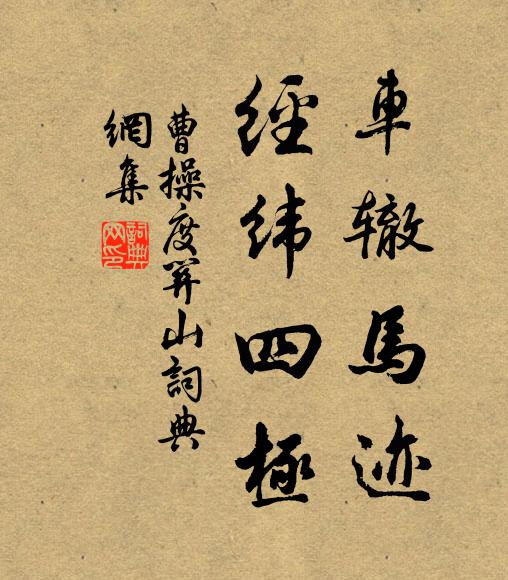 車辙馬迹
經纬四極
曹操度関山詞典
網集
詞典
网印